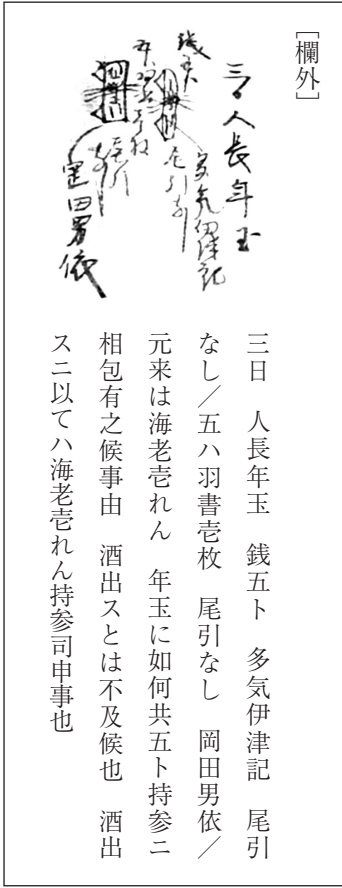 ［欄外］
三日　人長年玉　銭五ト　多気伊津記　尾引
なし／五ハ羽書壱枚　尾引なし　岡田男依／
元来は海老壱れん　年玉に如何共五ト持参ニ
相包有之候事由　酒出スとは不及候也　酒出
スニ以てハ海老壱れん持参司申事也
三日人長年玉
多気伊津記